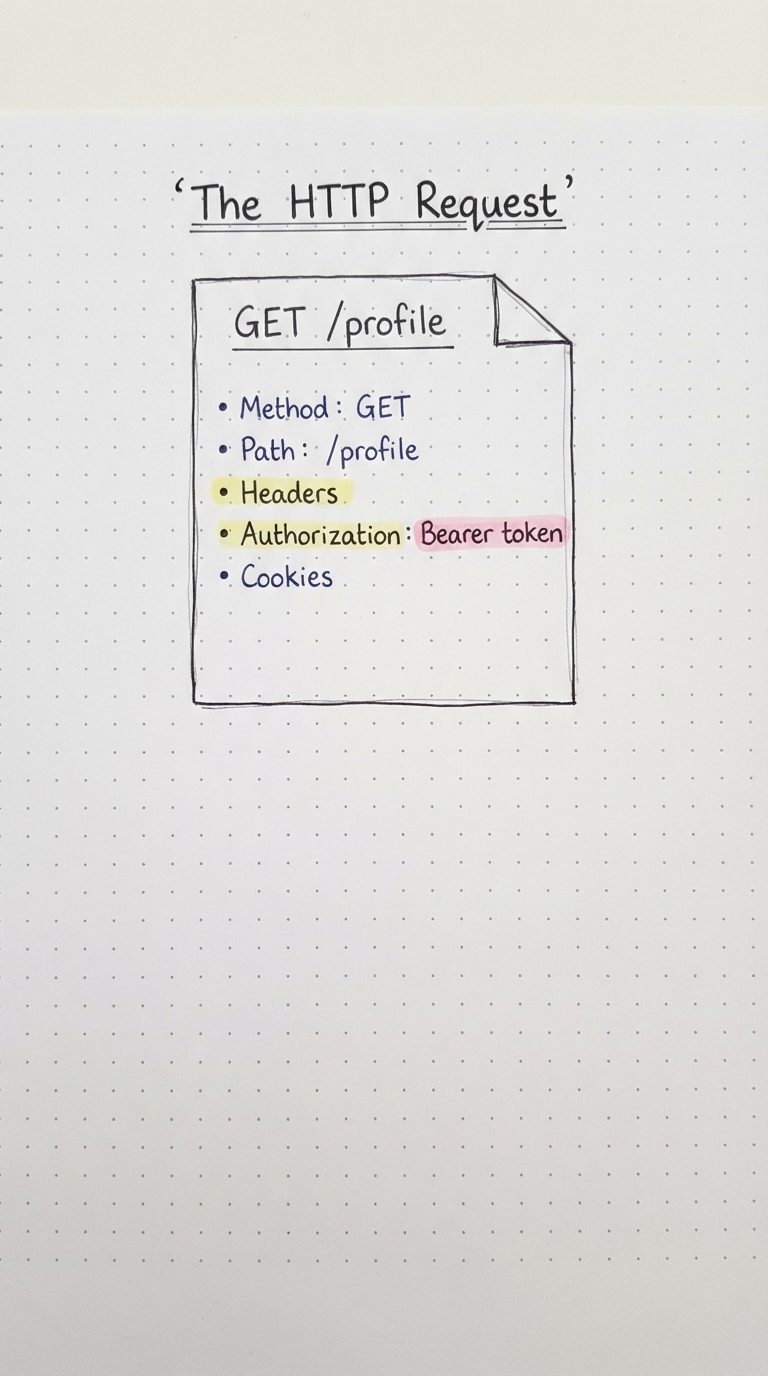 ‘The HTTP Request’
GET /profile
• Method: GET
• Path: /profile
• Headers
• Authorization: Bearer token
• Cookies